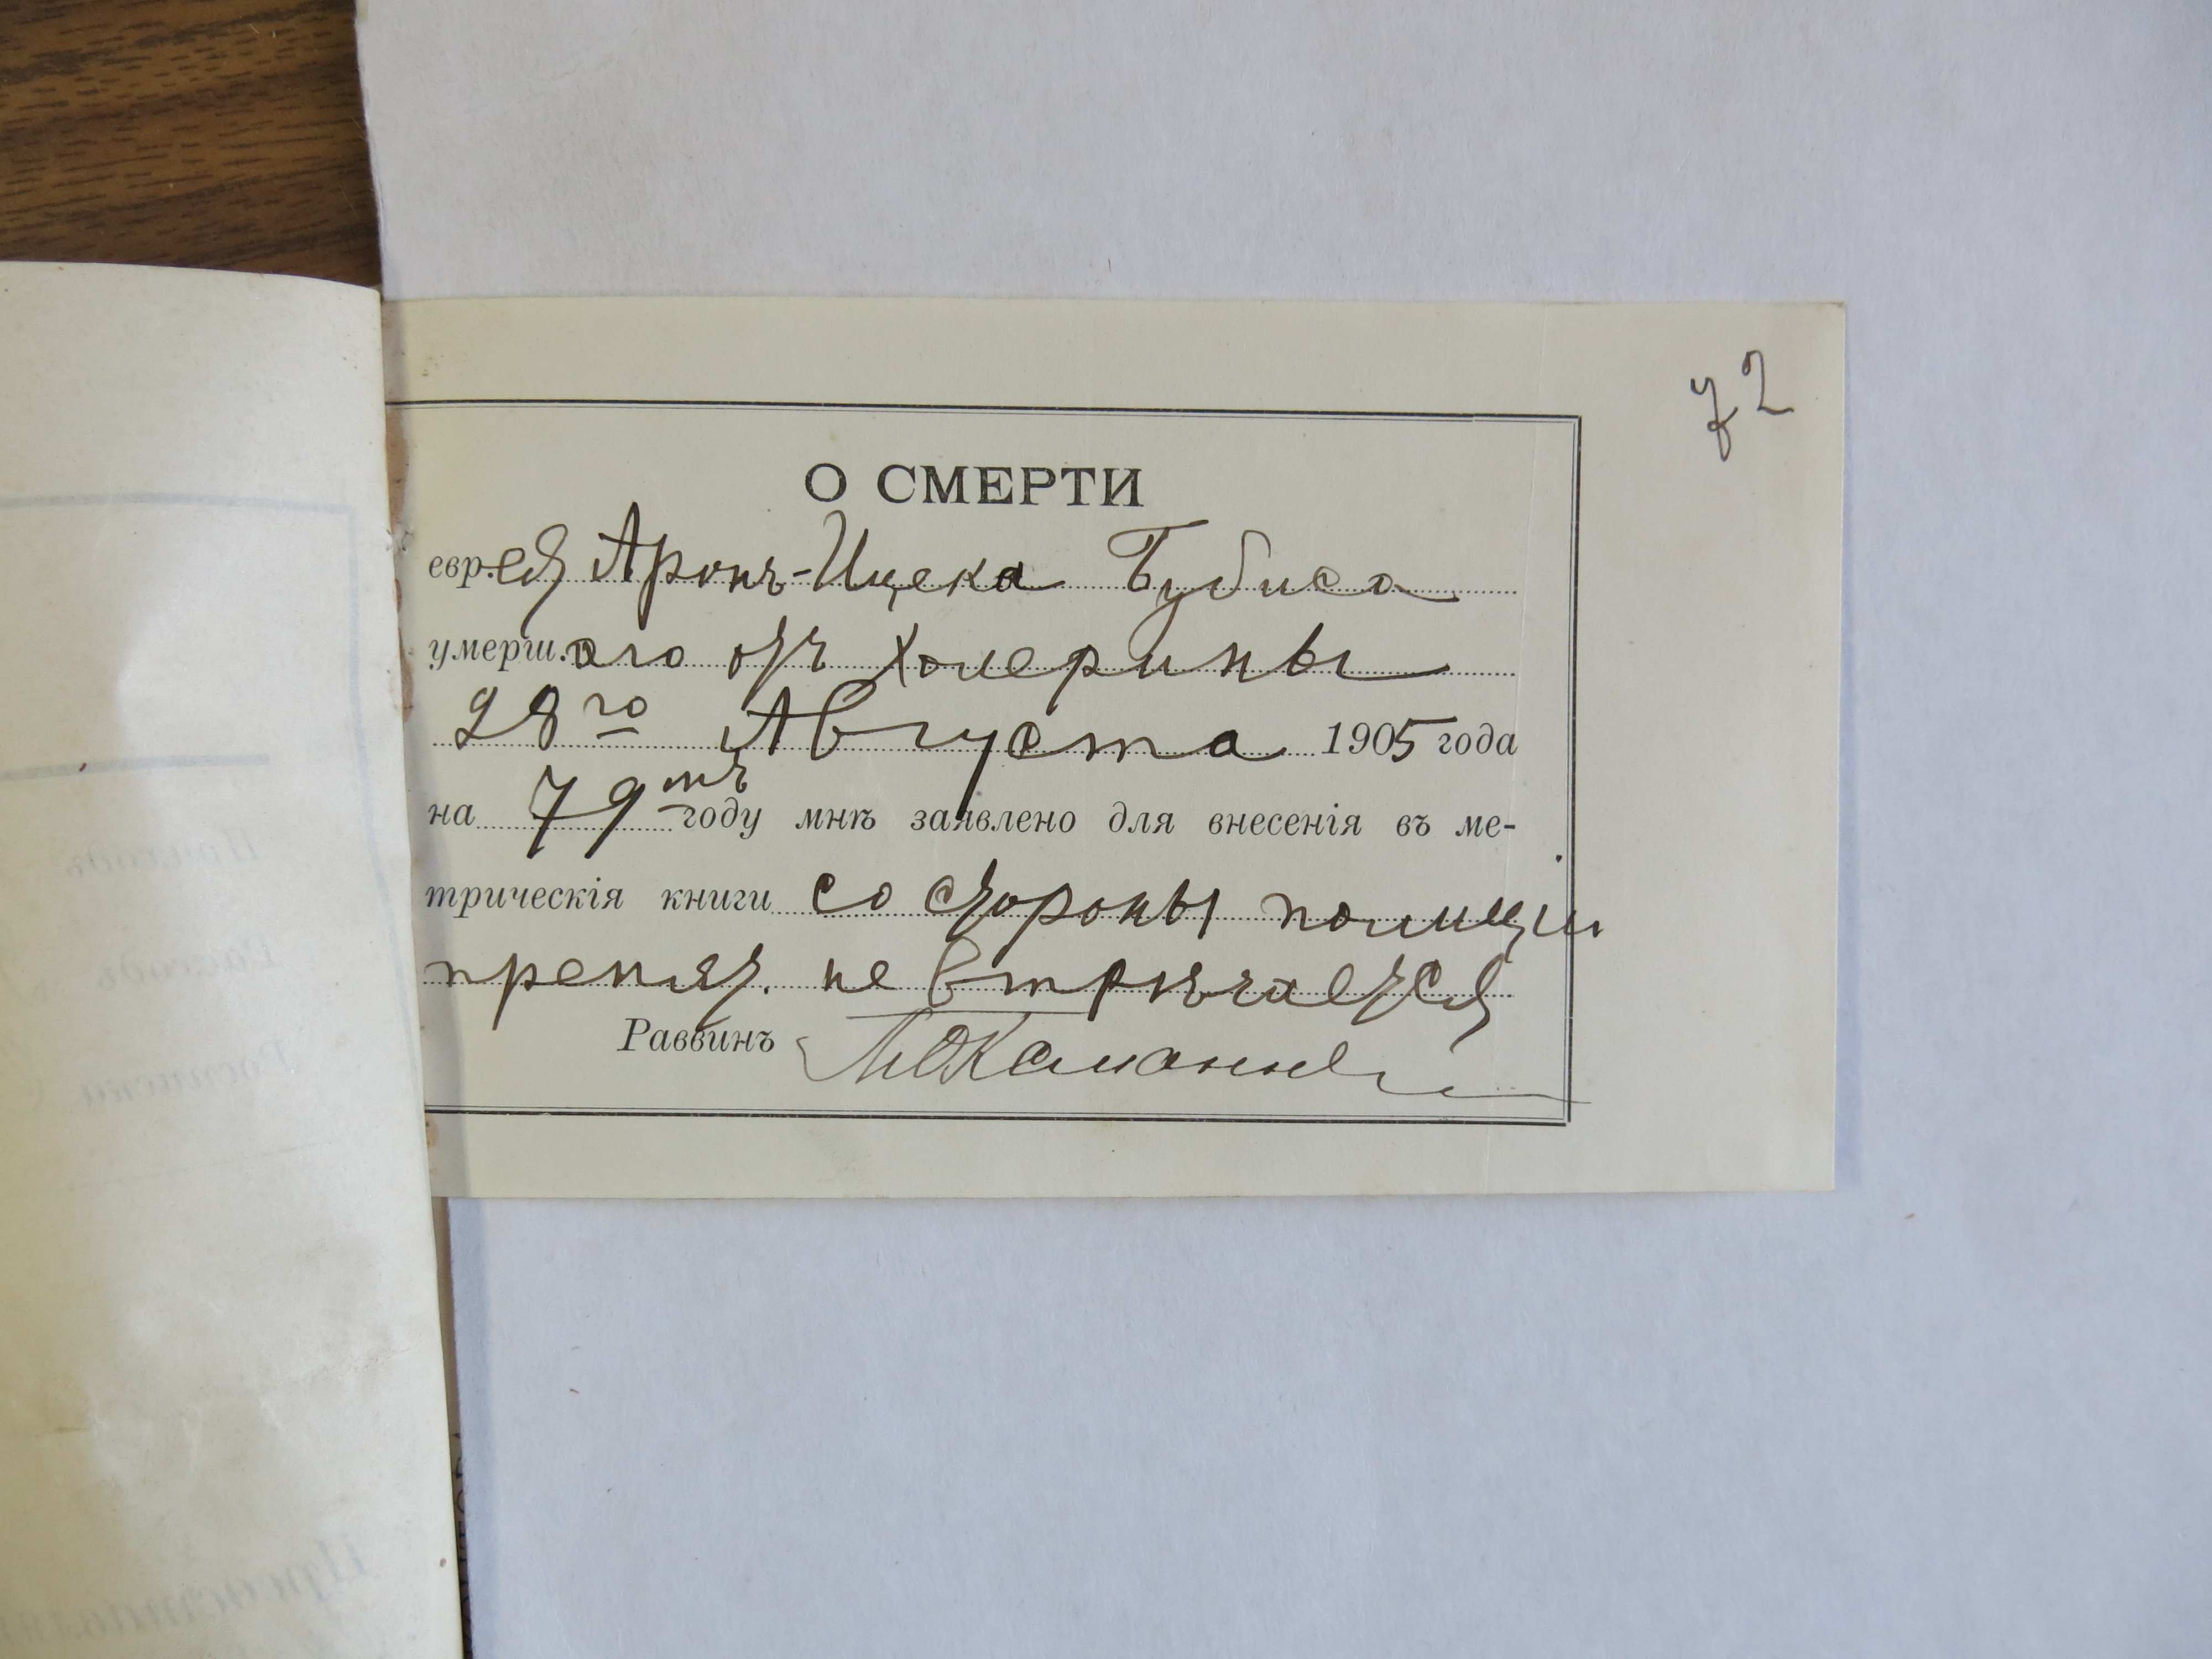 72
О СМЕРТИ
евр.ея Аронъ-Ицека Бубиса
умерш.аго отъ холерины
28го Августа 1905 года
на 79мъ году мнѣ заявлено для внесенія въ ме-
трическія книги со стороны полиціи
препят. не встрѣчается
Раввинъ